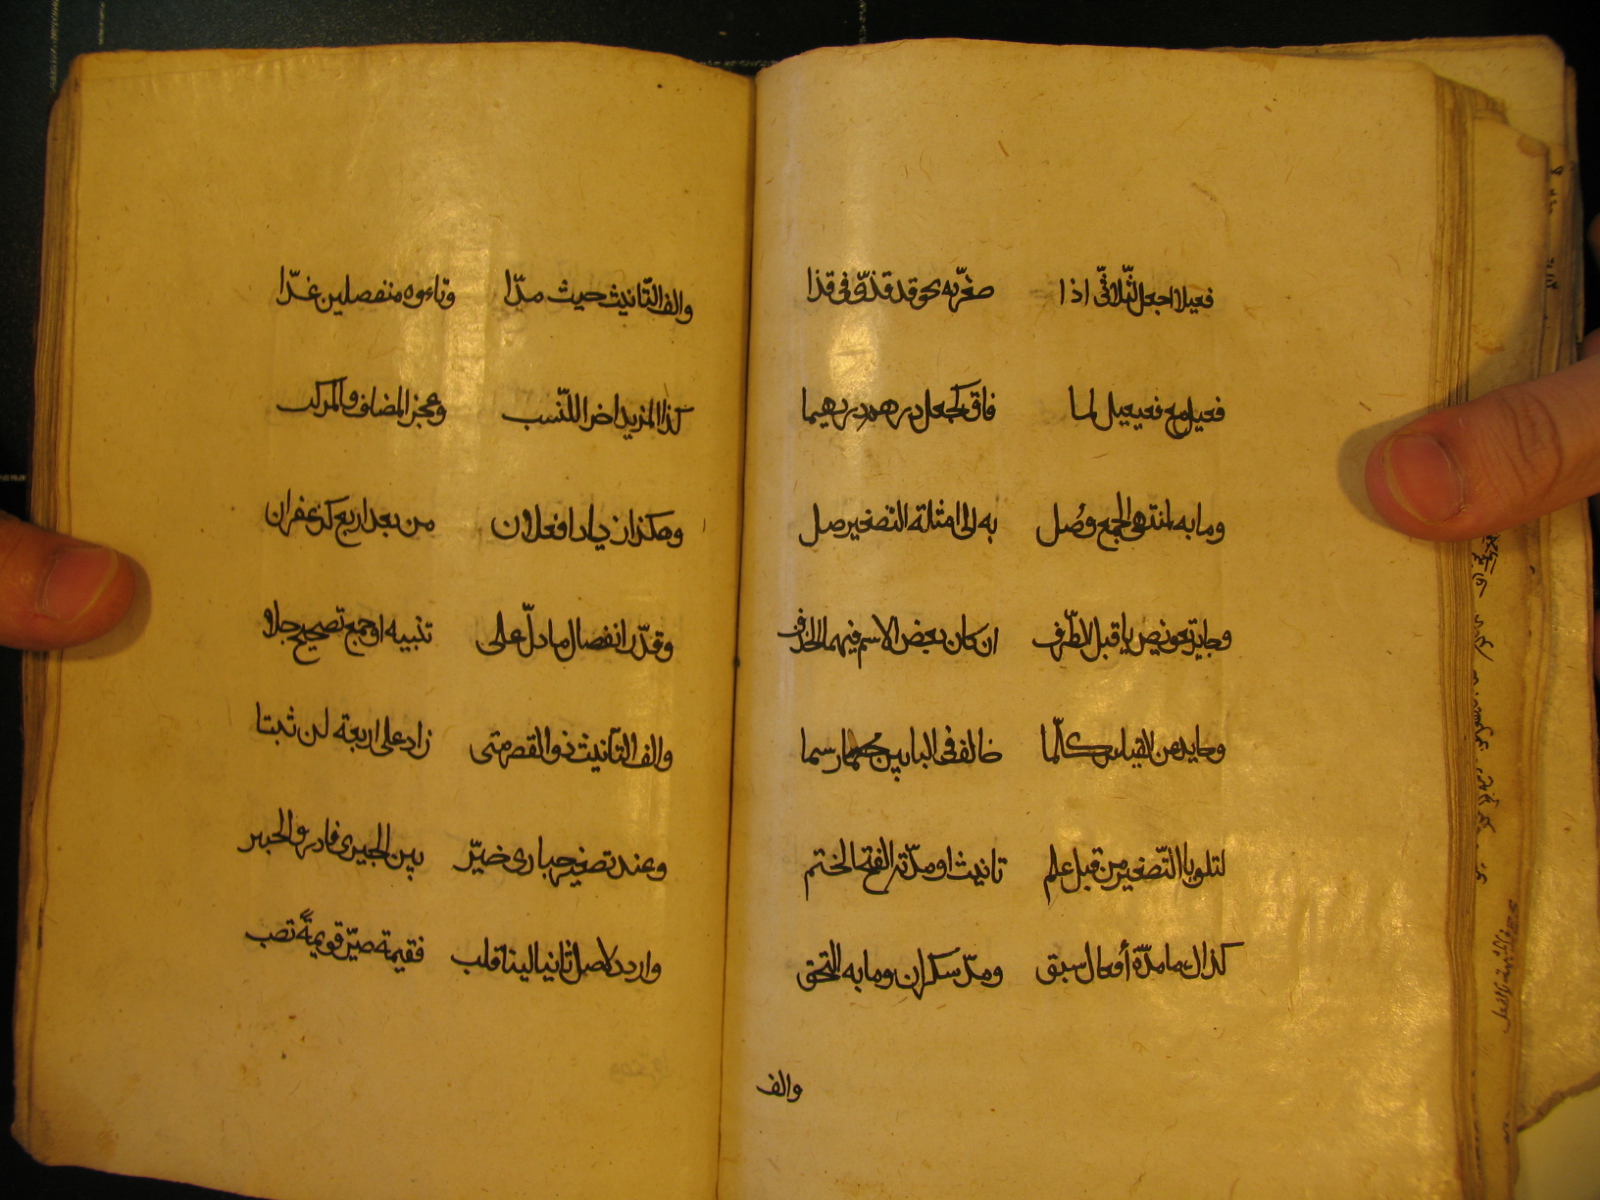 فعيلا اجعل الثّلاثّي اذا صغّرته نحو قد قذيّ في قذا
فعيل مع فعيعيل لما فاق كجعل درهم دريهيما
وما به لمنتهى الجمع وُصل به الى امثلة التصغير صل
وجايز تعويض يا قبل الطّرف ان كان بعض الاسم فيهما انحذف
وحايد عن القياس كلّما خالف في البابين حكما رسما
لتلو يا التّصغير من قبل علم تانيث او مدّته الفتح انختم
كذاك ما مدّة أفعال سبق ومدّ سكران وما به التحق
والف
والف التّانيث حيث مدّا وتاءوه منفصلين عدّا
كذا المزيد اخرا للنّسب وعجز المضاف والمركب
وهكذا زيادا فعلان من بعد اربع كزعفران
وقدّر انفصال ما دلّ على تنبيه او جمع تصحيح جلا
والف التّانيث ذو القصر متى زاد على اربعة لن ثبتا
وعند تصغير حبارى خيّر بين الحبيرى فادر والحبير
واردد لاصل ثانيا لينا قلب فقيمة صيّر قويمةً تصب